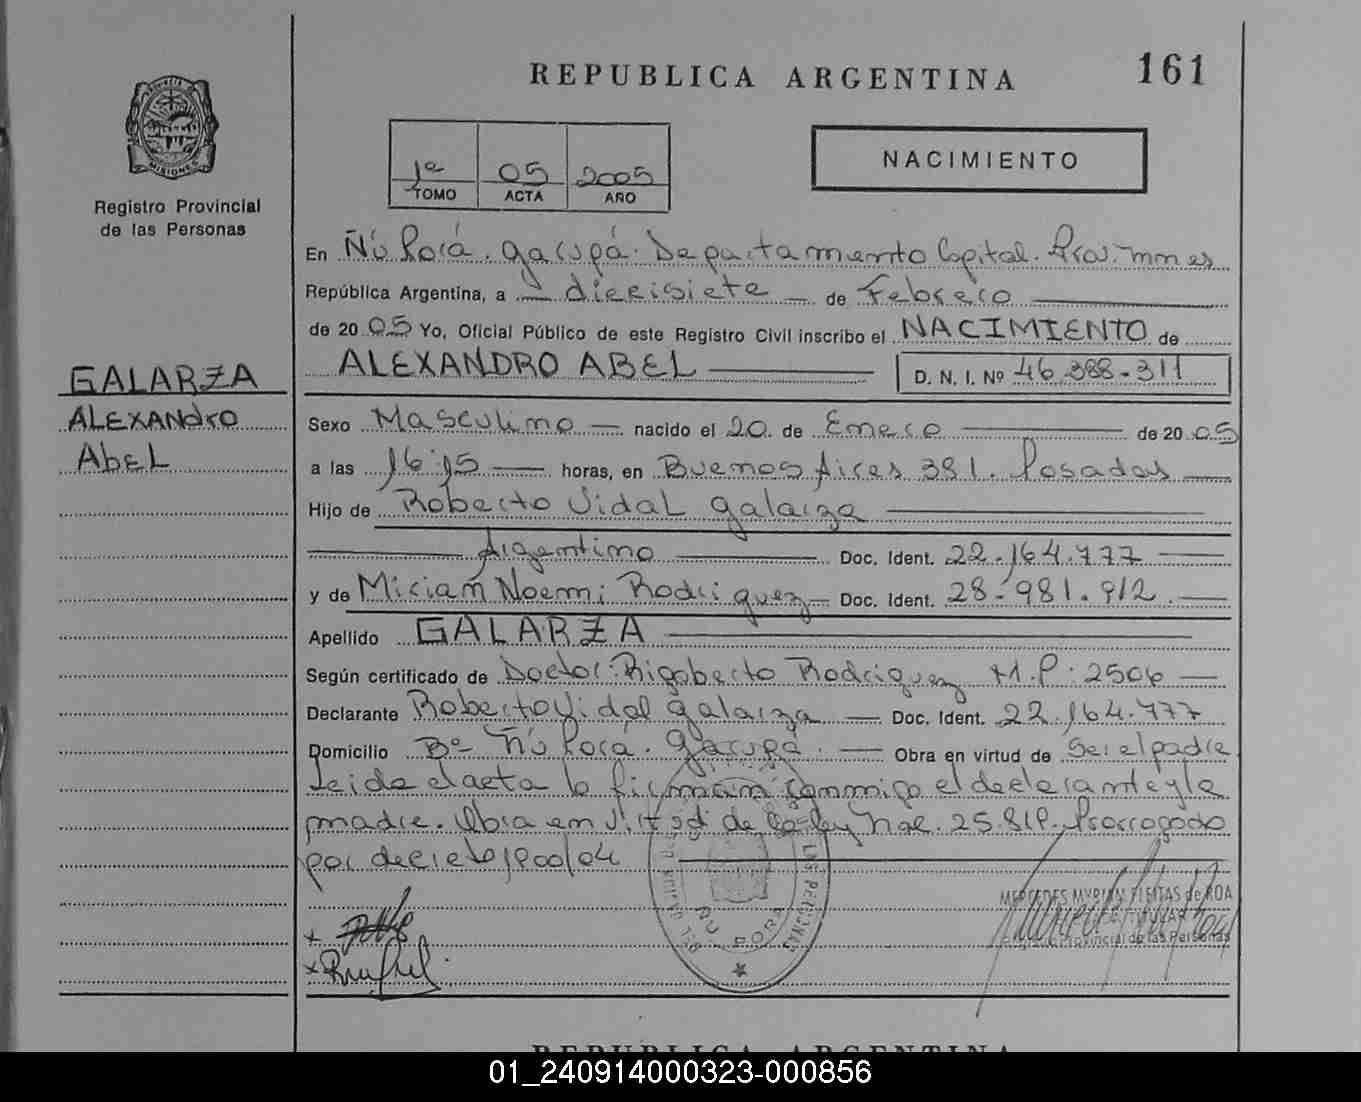 REPUBLICA ARGENTINA
161
PROVINCIA DE MISIONES
Registro Provincial
de las Personas
1º 05 2005
TOMO ACTA AÑO
NACIMIENTO
En Ñú Porá. Garupá. Departamento Capital. Prov. Mnes
República Argentina, a diecisiete de Febrero
de 2005 Yo, Oficial Público de este Registro Civil inscribo el NACIMIENTO de
ALEXANDRO ABEL D. N. I. Nº 46.388.311
GALARZA
ALEXANDRO
AbEL
Sexo Masculino nacido el 20 de Enero de 2005
a las 16:15 horas, en Buenos Aires 381. Posadas
Hijo de Roberto Vidal Galarza
Argentino Doc. Ident. 22.164.777
y de Miriam Noemi Rodriguez Doc. Ident. 28.981.912
Apellido GALARZA
Según certificado de Doctor: Rigoberto Rodriguez M.P: 2506
Declarante Roberto Vidal Galarza Doc. Ident. 22.164.777
Domicilio Bº Ñú Porá. Garupá. Obra en virtud de Ser el padre
Leida el acta la firman conmigo el declarante y la
madre. Obra en Virtud de la ley Nac. 25.819. Prorrogado
por decreto 1900/04
LAS PERSONAS
ÑU PORA
MERCEDES MYRIAN FLEITAS de ROA
TITULAR
Registro Provincial de las Personas
REPUBLICA ARGENTINA
01_240914000323-000856